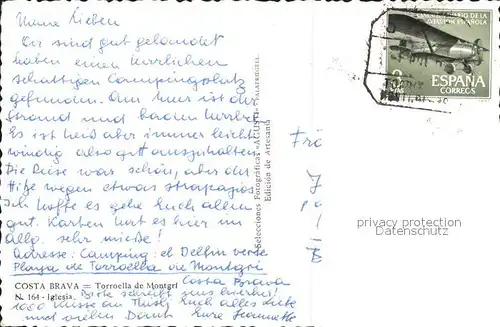 Meine Lieben
Wir sind gut gelandet
haben einen herrlichen
schattigen Campingplatz
gefunden. Am Meer ist der
Strand und baden herrlich
Es ist heiß aber immer leicht
windig also gut auszuhalten
Die Reise war schön, aber der
Hitze wegen etwas strapaziös
Ich hoffe es gehe Euch allen
gut. Karten hat es hier im
allg. sehr miese!
Adresse: Camping: el Delfin verde
Playa de Torroella de Montgri
Costa Brava
COSTA BRAVA = Torroella de Montgrí
N. 164 - Iglesia.
Bitte schreibt uns hierher!
1000 Küsse an Euch alles Liebe
und vielen Dank Eure Jeannette
Selecciones Fotográficas «AGUSTI» PALAFRUGELL
Edición de Artesanía
AVIACION ESPAÑOLA
3
PTAS
ESPAÑA
CORREOS
Frä
J
B
privacy protection
Datenschutz